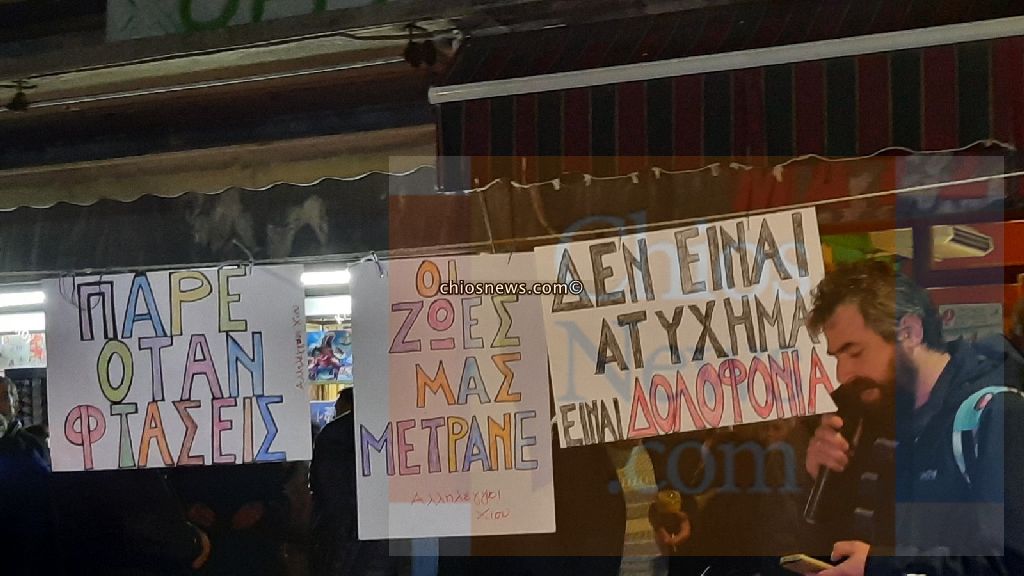 ΠΑΡΕ
ΟΤΑΝ
ΦΤΑΣΕΙΣ
ΟΙ
ΖΩΕΣ
ΜΑΣ
ΜΕΤΡΑΝΕ
Αλληλέγγυοι
Χίου
ΔΕΝ ΕΙΝΑΙ
ΑΤΥΧΗΜΑ
ΕΙΝΑΙ ΔΟΛΟΦΟΝΙΑ
chiosnews.com©
Chios
News
.com